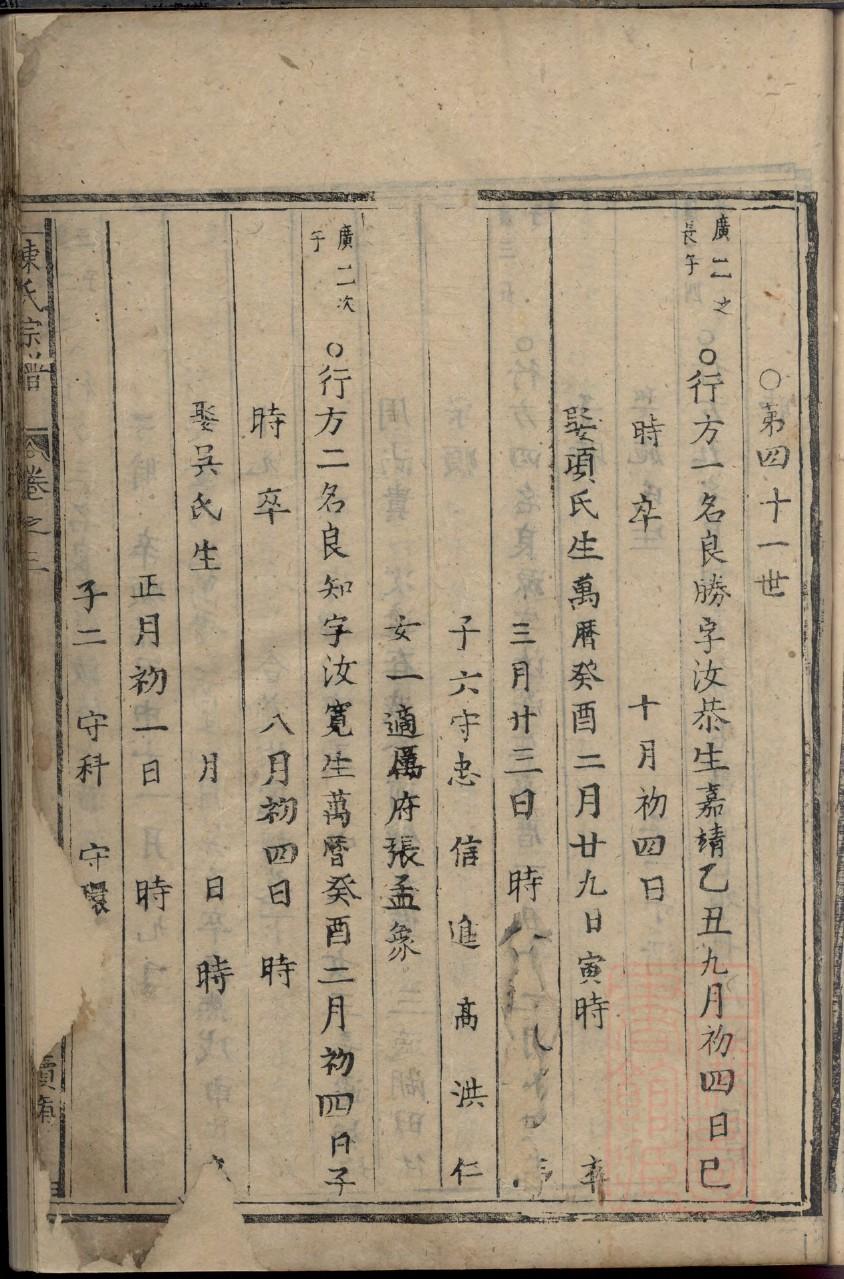 ○第四十一世
廣二之長子
○行方一名良勝字汝恭生嘉靖乙丑九月初四日巳
時卒 十月初四日
娶項氏生萬曆癸酉二月廿九日寅時 卒
三月廿三日 時
子六守忠 信 進 高 洪 仁
女一適厲府張孟象
廣二次子
○行方二名良知字汝寬生萬曆癸酉二月初四日子
時卒 八月初四日 時
娶吴氏生 月 日 時
正月初一日 時
子二 守科 守環
陳氏宗譜 卷之三